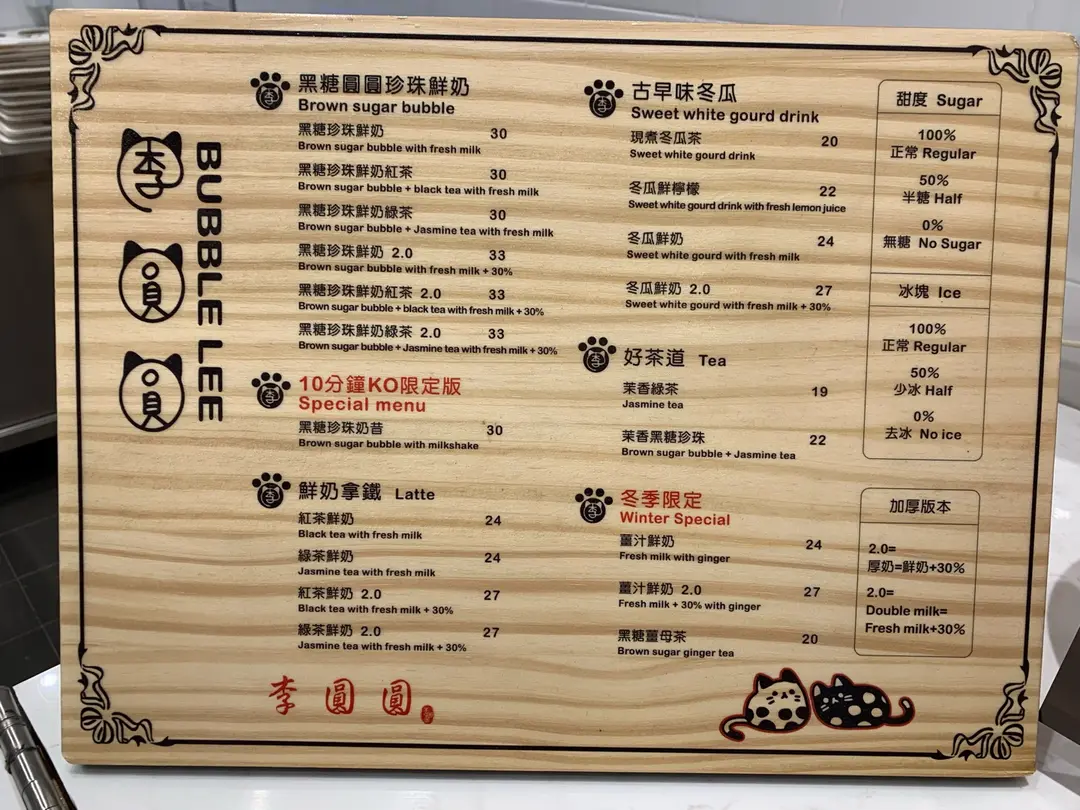 李
圓
圓
BUBBLE LEE
李 黑糖圓圓珍珠鮮奶
Brown sugar bubble
黑糖珍珠鮮奶 30
Brown sugar bubble with fresh milk
黑糖珍珠鮮奶紅茶 30
Brown sugar bubble + black tea with fresh milk
黑糖珍珠鮮奶綠茶 30
Brown sugar bubble + Jasmine tea with fresh milk
黑糖珍珠鮮奶 2.0 33
Brown sugar bubble with fresh milk + 30%
黑糖珍珠鮮奶紅茶 2.0 33
Brown sugar bubble + black tea with fresh milk + 30%
黑糖珍珠鮮奶綠茶 2.0 33
Brown sugar bubble + Jasmine tea with fresh milk + 30%
李 10分鐘KO限定版
Special menu
黑糖珍珠奶昔 30
Brown sugar bubble with milkshake
李 鮮奶拿鐵 Latte
紅茶鮮奶 24
Black tea with fresh milk
綠茶鮮奶 24
Jasmine tea with fresh milk
紅茶鮮奶 2.0 27
Black tea with fresh milk + 30%
綠茶鮮奶 2.0 27
Jasmine tea with fresh milk + 30%
李圓圓
李 古早味冬瓜
Sweet white gourd drink
現煮冬瓜茶 20
Sweet white gourd drink
冬瓜鮮檸檬 22
Sweet white gourd drink with fresh lemon juice
冬瓜鮮奶 24
Sweet white gourd with fresh milk
冬瓜鮮奶 2.0 27
Sweet white gourd with fresh milk + 30%
李 好茶道 Tea
茉香綠茶 19
Jasmine tea
茉香黑糖珍珠 22
Brown sugar bubble + Jasmine tea
李 冬季限定
Winter Special
薑汁鮮奶 24
Fresh milk with ginger
薑汁鮮奶 2.0 27
Fresh milk + 30% with ginger
黑糖薑母茶 20
Brown sugar ginger tea
甜度 Sugar
100%
正常 Regular
50%
半糖 Half
0%
無糖 No Sugar
冰塊 Ice
100%
正常 Regular
50%
少冰 Half
0%
去冰 No ice
加厚版本
2.0=
厚奶=鮮奶+30%
2.0=
Double milk=
Fresh milk+30%